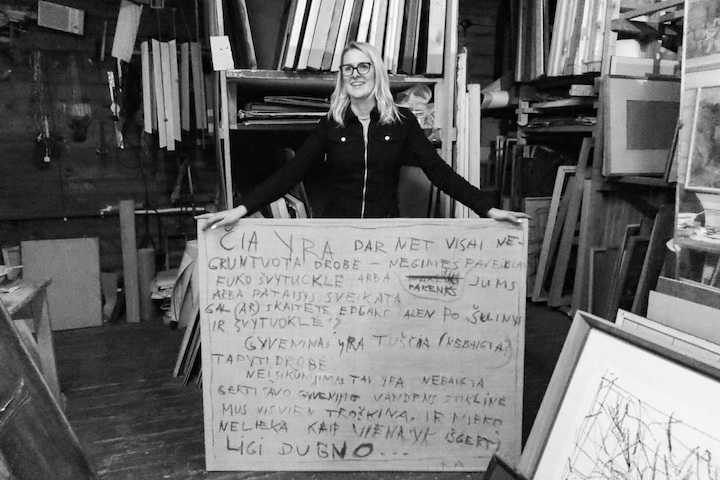 ČIA YRA DAR NET VISAI NE-
GRUNTUOTA DROBĖ – NEGIMĘS PAVEIKSLAS
FUKO ŠVYTUOKLĖ ARBA PAKENKS JUMS
ARBA PATAISYS SVEIKATĄ
GAL (AR) SKAITĖTE EDGARO ALEN PO „ŠULINYS
IR ŠVYTUOKLĖ"?
GYVENIMAS YRA TUŠČIA (NEBAIGTA)
TAPYTI DROBĖ
NEIŠSIKŪNIJIMAS TAI YRA NEBAIGTA
GERTI SAVO GYVENIMO VANDENS STIKLINĖ
MUS VISVIEN TROŠKINA. IR NIEKO
NELIEKA KAIP VIENĄSYK IŠGERTI
LIGI DUGNO...